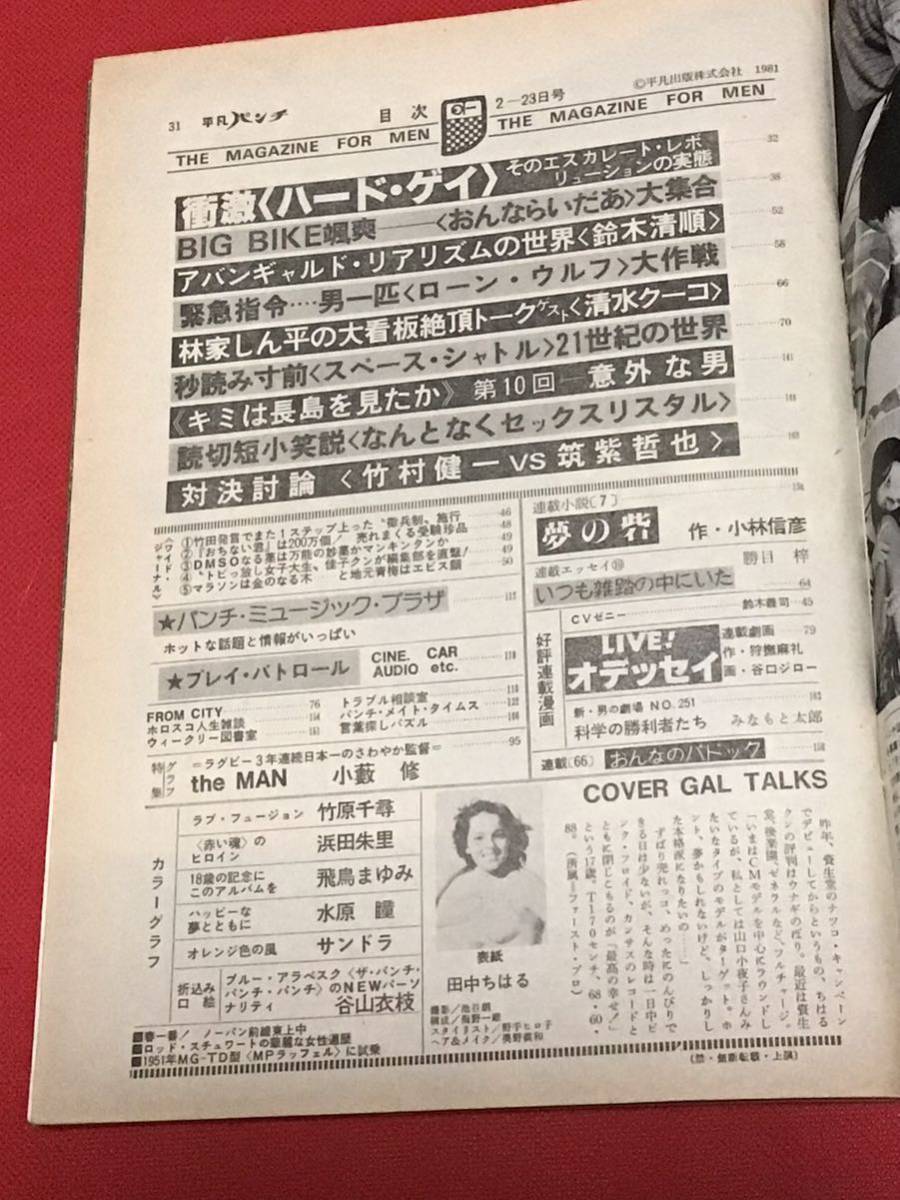 ©平凡出版株式会社 1981
31 平凡パンチ 目次 2—23日号
THE MAGAZINE FOR MEN THE MAGAZINE FOR MEN
衝激〈ハード・ゲイ〉そのエスカレート・レボリューションの実態 32
BIG BIKE颯爽——〈おんならいだあ〉大集合 38
アバンギャルド・リアリズムの世界〈鈴木清順〉 52
緊急指令‥‥男一匹〈ローン・ウルフ〉大作戦 58
林家しん平の大看板絶頂トークゲスト〈清水クーコ〉 66
秒読み寸前〈スペース・シャトル〉21世紀の世界 70
《キミは長島を見たか》第10回—意外な男 141
読切短小笑説〈なんとなくセックスリスタル〉
対決討論〈竹村健一VS筑紫哲也〉
〈ワイド・ジャーナル〉
①竹田発言でまた1ステップ上った〝衛兵制〟施行 46
②『おちない君』は200万個! 売れまくる受験珍品 48
③DMSOなる薬は万能の妙薬かマンキンタンか 49
④〝トビっ放し女子大生〟佳子クンが編集部を直撃! 49
⑤マラソンは金のなる木 と地元青梅はエビス顔 50
★パンチ・ミュージック・プラザ
ホットな話題と情報がいっぱい
★プレイ・パトロール CINE. CAR AUDIO etc.
FROM CITY 76
ホロスコ人生雑談
ウィークリー図書室
トラブル相談室
パンチ・メイト・タイムス
言葉探しパズル
グラフ特集
=ラグビー3年連続日本一のさわやか監督= 95
the MAN 小藪 修
連載小説〔7〕
夢の砦 作・小林信彦
連載エッセイ 勝目 梓
いつも雑踏の中にいた 64
好評連載漫画
CVゼニー 鈴木義司 45
LIVE! オデッセイ
連載劇画 79
作・狩撫麻礼
画・谷口ジロー
新・男の劇場 NO.251
科学の勝利者たち みなもと太郎
連載(66) おんなのパドック
カラーグラフ
ラブ・フュージョン 竹原千尋
〈赤い魂〉のヒロイン 浜田朱里
18歳の記念にこのアルバムを 飛鳥まゆみ
ハッピーな夢とともに 水原 瞳
オレンジ色の風 サンドラ
折込み口絵 ブルー・アラベスク〈ザ・パンチ・パンチ・パンチ〉のNEWパーソナリティ 谷山衣枝
表紙
田中ちはる
撮影/池谷朗
構成/梅野一雄
スタイリスト/野手ヒロ子
ヘア&メイク/奥野鎮和
COVER GAL TALKS
昨年、資生堂のナツコ・キャンペーン
でデビューしてからというもの、ちはる
クンの評判はウナギのぼり。最近は資生
堂、後楽園、ゼネラルなど、フルチャージ。
「いまはCMモデルを中心にラウンドし
ているが、私としては山口小夜子さんみ
たいなタイプのモデルがターゲット。ホ
ント、夢かもしれないけど、しっかりし
た本格派になりたいの……」
ずばり売れっコ、めったにのんびりで
きる日は少ないが、そんな時は一日中ピ
ンク・フロイド、カンサスのレコードと
ともに閉じこもるのが「最高の幸せ!」
という17歳。T170センチ、68・60・
88。(所属=ファースト・プロ)
■春一番! ノーパン前線東上中
■ロッド・スチュワートの華麗な女性遍歴
■1951年MG-TD型〈MPラッフェル〉に試乗
(禁・無断転載・上演)